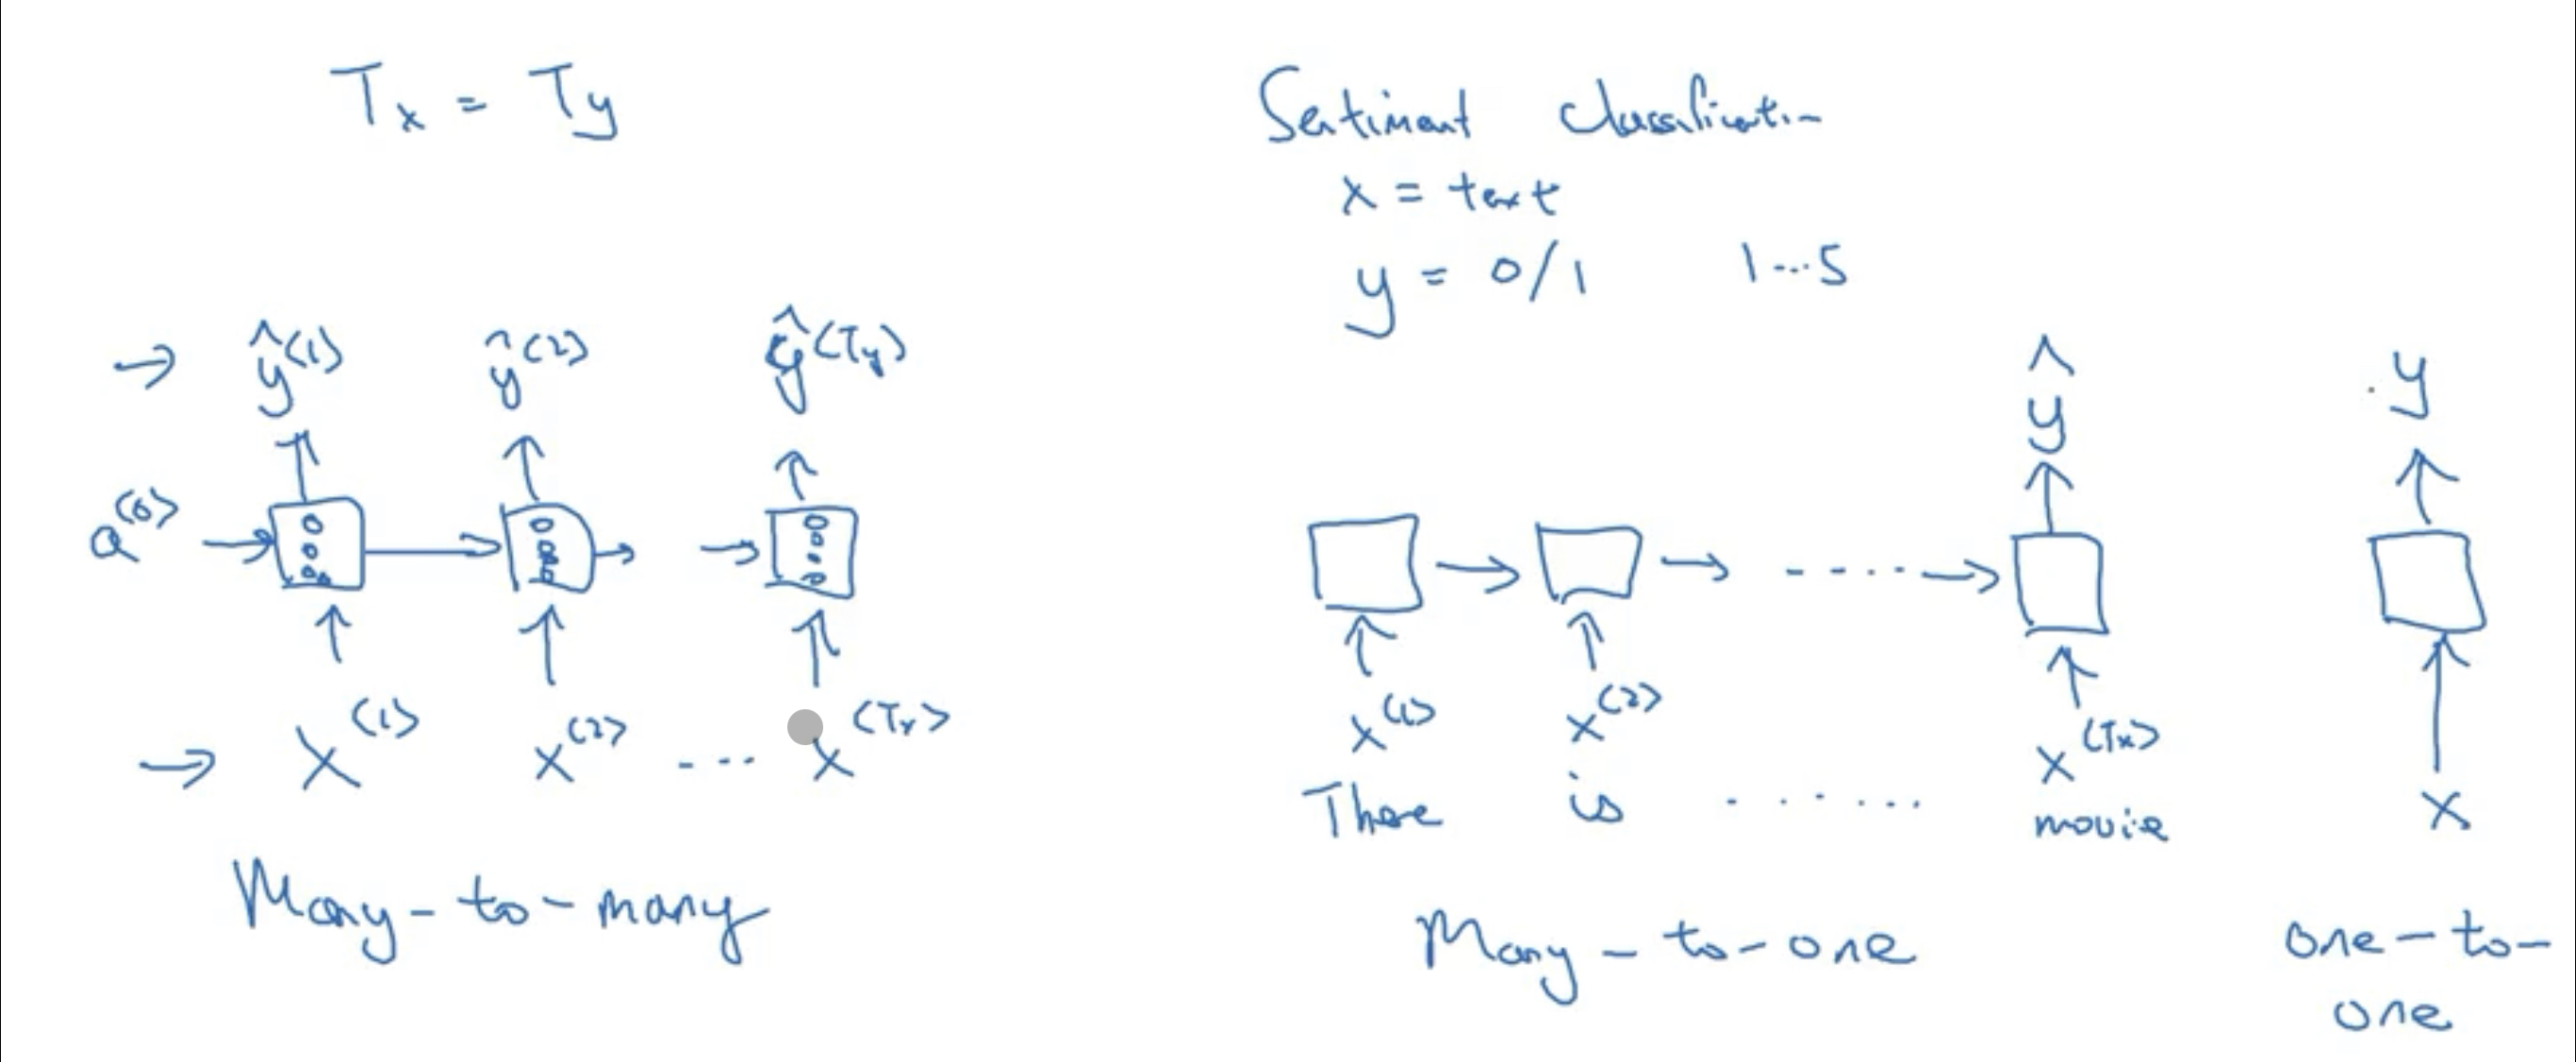 Tx = Ty
→ ŷ⟨1⟩ ŷ⟨2⟩ ŷ⟨Ty⟩
a⟨0⟩
→ x⟨1⟩ x⟨2⟩ ... x⟨Tx⟩
Many-to-many
Sentiment Classification
x = text
y = 0/1 1...5
ŷ
x⟨1⟩ x⟨2⟩ x⟨Tx⟩
There is ....... movie
Many-to-one
y
x
one-to-
one